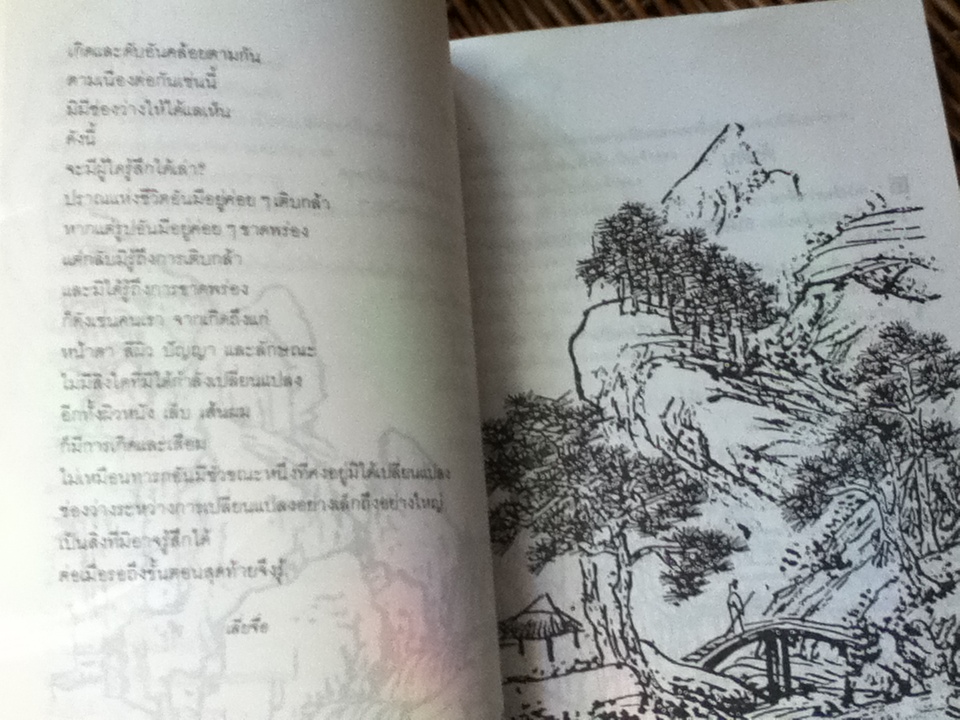 เกิดและดับอันคล้อยตามกัน
ตามเนื่องต่อกันเช่นนี้
มิมีช่องว่างให้ได้แลเห็น
ดังนี้
จะมีผู้ใดรู้สึกได้เล่า?
ปราณแห่งชีวิตอันมีอยู่ค่อย ๆ เติบกล้า
หากแต่รูปอันมีอยู่ค่อย ๆ ขาดพร่อง
แต่กลับมิรู้ถึงการเติบกล้า
และมิได้รู้ถึงการขาดพร่อง
ก็ดังเช่นคนเรา จากเกิดถึงแก่
หน้าตา สีผิว ปัญญา และลักษณะ
ไม่มีสิ่งใดที่มิได้กำลังเปลี่ยนแปลง
อีกทั้งผิวหนัง เล็บ เส้นผม
ก็มีการเกิดและเสื่อม
ไม่เหมือนทารกอันมีชั่วขณะหนึ่งที่คงอยู่มิได้เปลี่ยนแปลง
ช่องว่างระหว่างการเปลี่ยนแปลงอย่างเล็กถึงอย่างใหญ่
เป็นสิ่งที่มิอาจรู้สึกได้
ต่อเมื่อรอถึงขั้นตอนสุดท้ายจึงรู้
เลียจื๊อ